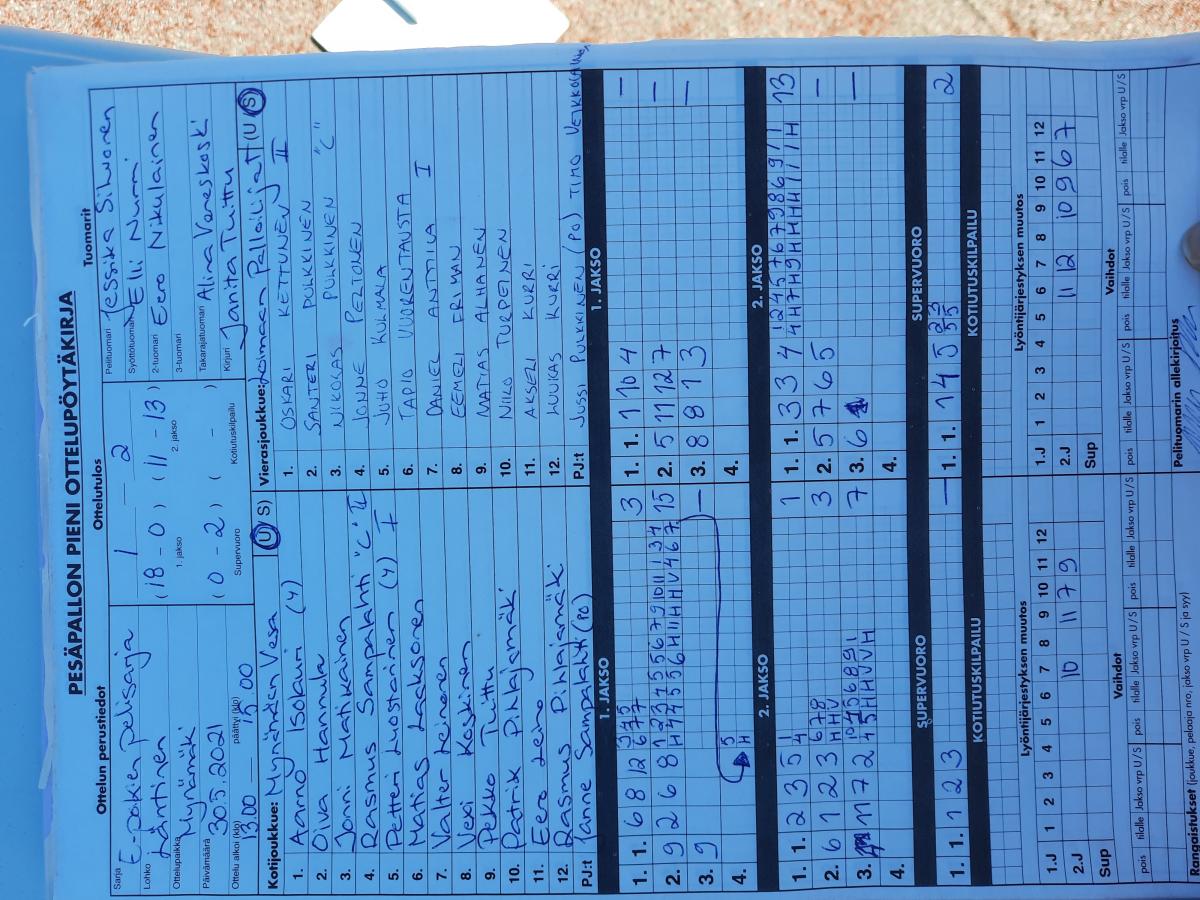 PESÄPALLON PIENI OTTELUPÖYTÄKIRJA
Ottelun perustiedot
Sarja E-poikien pelisarja
Lohko Läntinen
Ottelupaikka Mynämäki
Päivämäärä 30.5.2021
Ottelu alkoi (klo) 13.00 päättyi (klo) 15.00
Ottelutulos
1 — 2
(18 - 0) (11 - 13)
1. jakso 2. jakso
(0 - 2) ( - )
Supervuoro Kotiutuskilpailu
Tuomarit
Pelituomari Jessika Silvonen
Syöttötuomari Elli Nurmi
2-tuomari Eero Nikulainen
3-tuomari
Takarajatuomari Alina Veneskoski
Kirjuri Janita Tuittu
Kotijoukkue: Mynämäen Vesa (U/S)
1. Aarno Isotauri (4)
2. Oiva Hannula
3. Joni Matikainen
4. Rasmus Sampalahti "C" II
5. Petteri Luostarinen (4) I
6. Matias Laaksonen
7. Valter Leinonen
8. Vexi Koskinen
9. Pekko Tuittu
10. Patrik Pihlajamäki
11. Eero Leino
12. Rasmus Pihlajamäki
PJ:t Janne Sampalahti (PO)
Vierasjoukkue: Loimaan Palloilijat (U/S)
1. OSKARI KETTUNEN II
2. SANTERI PULKKINEN
3. NIKOLAS PULKKINEN "C"
4. JONNE PELTONEN
5. JUHO KULMALA
6. TAPIO VUORENTAUSTA
7. DANIEL ANTTILA I
8. EEMELI FRIMAN
9. MATIAS ALHANEN
10. NIKO TURPEINEN
11. AKSELI KURRI
12. LUUKAS KURRI
PJ:t JUSSI PULKKINEN (PO) TIMO
1. JAKSO 1. JAKSO
1. 1. 6 8 12 3 1. 1. 1 10 4 —
2. 9 2 6 8 15 2. 5 11 12 7 —
3. 9 — 3. 8 8 1 3 —
4. 4.
2. JAKSO 2. JAKSO
1. 1. 2 3 5 1 1. 1. 3 3 4 13
2. 6 1 2 3 3 2. 5 7 6 5 —
3. 11 7 2 7 3. 6 —
4. 4.
SUPERVUORO SUPERVUORO
1. 1. 1 2 3 — 1. 1. 1 4 5 2
KOTIUTUSKILPAILU KOTIUTUSKILPAILU
Lyöntijärjestyksen muutos Lyöntijärjestyksen muutos
1.J 1 2 3 4 5 6 7 8 9 10 11 12 1.J 1 2 3 4 5 6 7 8 9 10 11 12
2.J 10 11 7 9 2.J 11 12 10 9 6 7
Sup Sup
Vaihdot Vaihdot
pois tilalle Jakso vrp U/S pois tilalle Jakso vrp U/S pois tilalle Jakso vrp U/S pois tilalle Jakso vrp U/S
Rangaistukset (joukkue, pelaaja nro, jakso vrp U / S ja syy)
Pelituomarin allekirjoitus